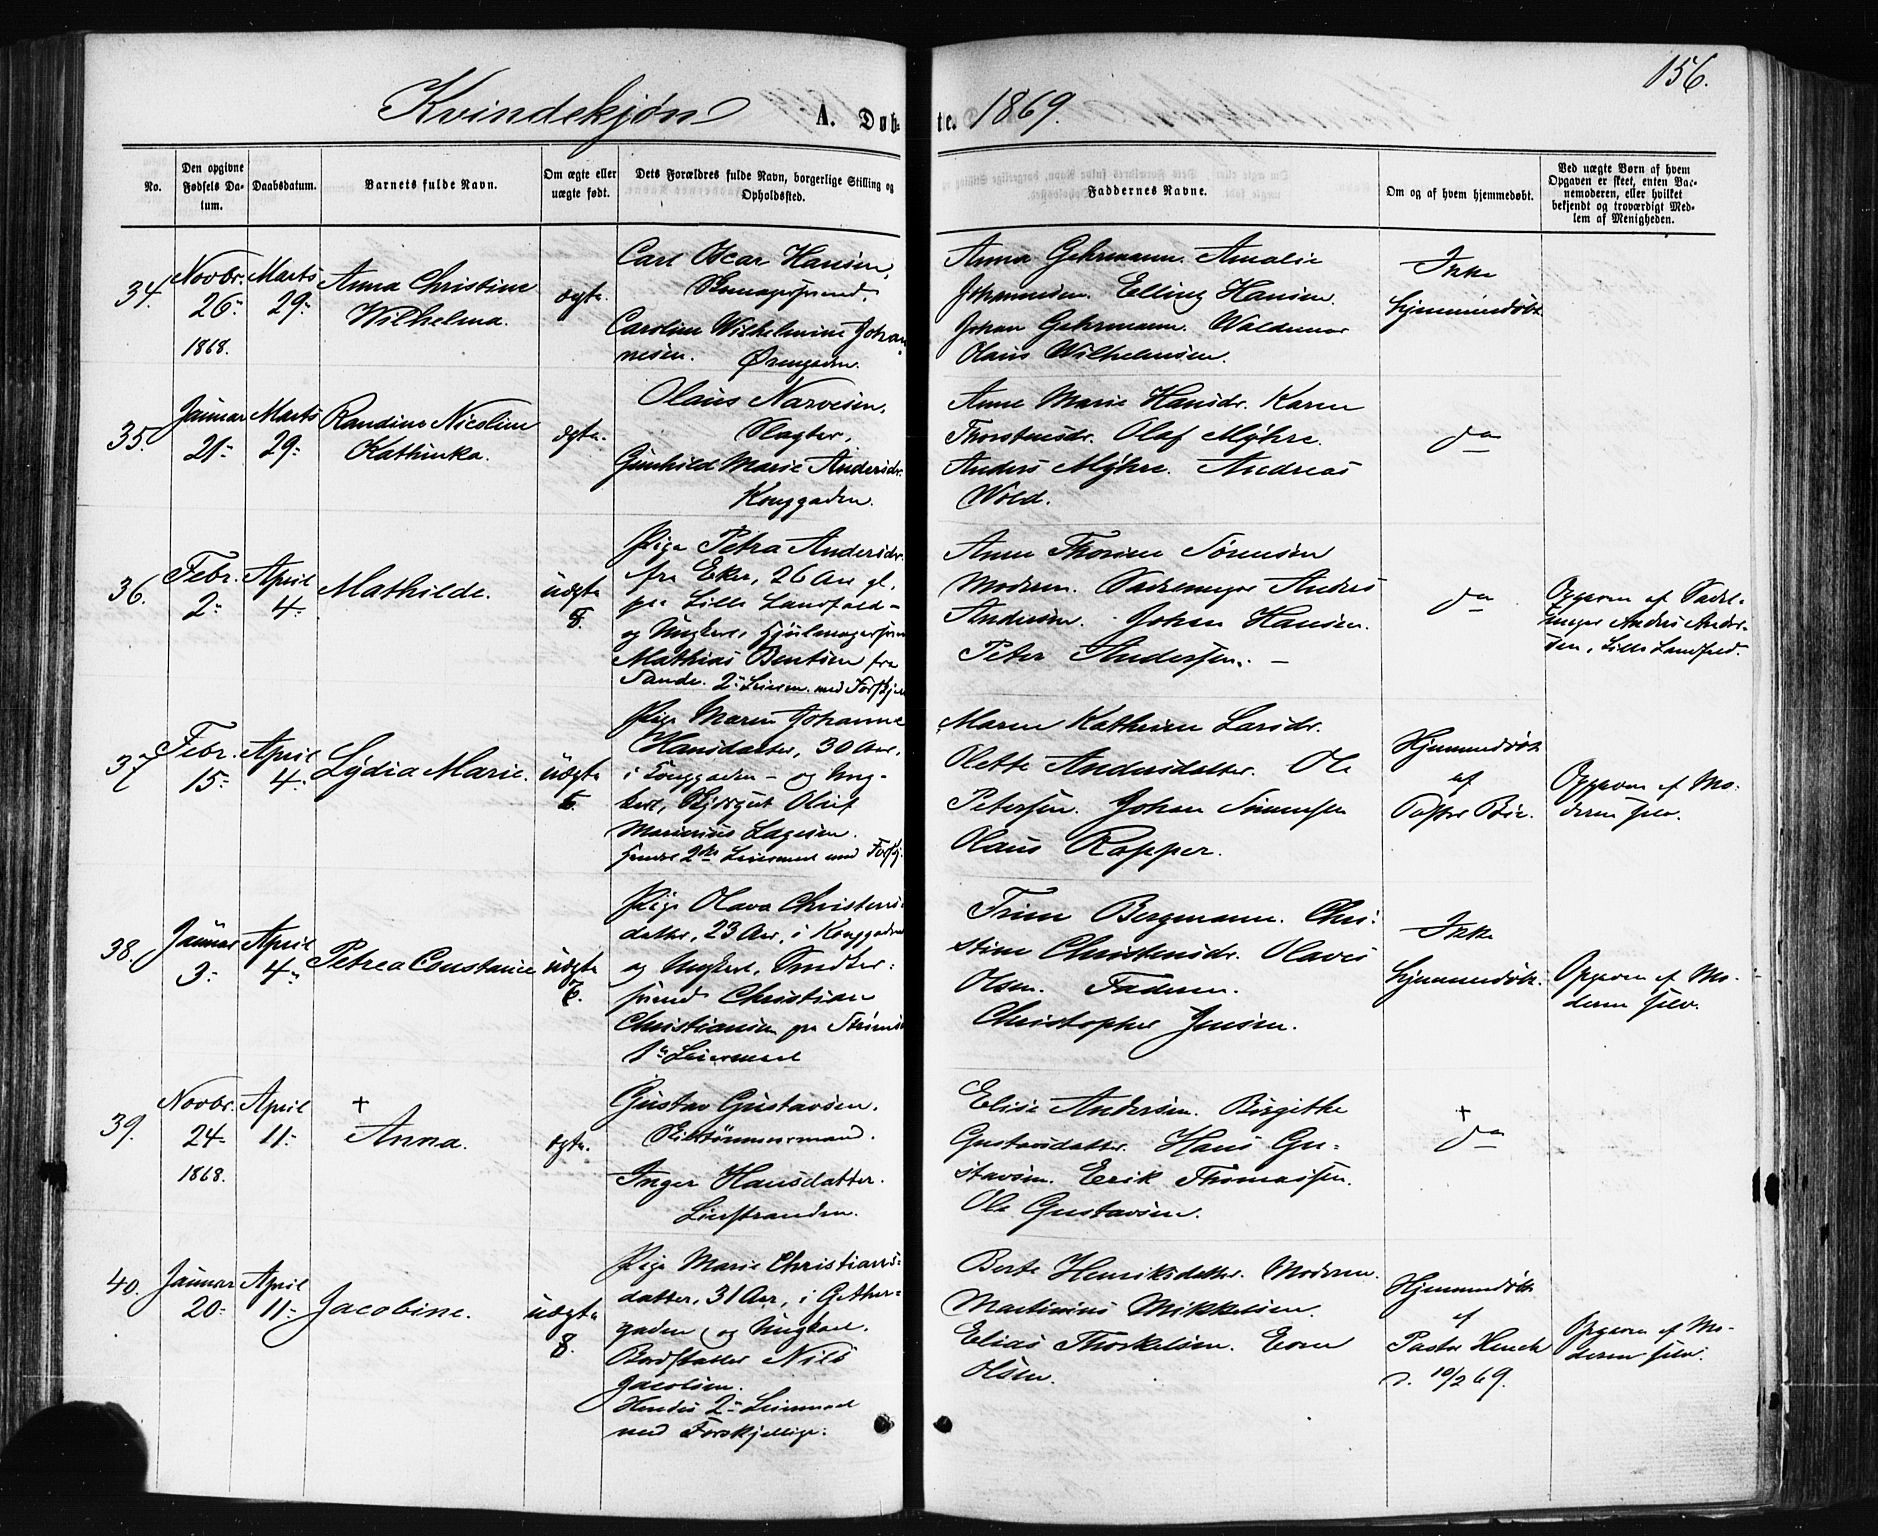 156.
Kvindekjøn A. Døbte. 1869.
No.
Den opgivne Fødsels Datum.
Daabsdatum.
Barnets fulde Navn.
Om ægte eller uægte født.
Dets Forældres fulde Navn, borgerlige Stilling og Opholdssted.
Faddernes Navne.
Om og af hvem hjemmedøbt.
Ved uægte Børn af hvem Opgaven er skeet, enten Barnemoderen, eller hvilket bekjendt og troværdigt Medlem af Menigheden.
34.
Novbr. 26 1868.
Marts 29
Anna Christine
Wilhelma.
ægte.
Carl Oscar Hansen,
Caroline Wilhelmine Johan
nesen. Ørengaden.
Anna Gehrmann. Amalie
Johannesen. Elling Hansen.
Johan Gehrmann. Waldemar
Olaus Wilhelmsen.
Ikke
hjemmedøbt
35.
Januar 21
Marts 29
Randine Nicoline
Kathinka.
ægte.
Olaus Narvesen,
Slagter,
Gunhild Marie Andersdr.
Konggaden.
Anne Marie Hansdr. Karen
Thorstensdr. Olaf Myhre.
Anders Myhre. Andreas
Wold.
do
36.
Febr. 2
April 4
Mathilde.
uægte
8.
Pige Petra Andersdr.
fra Eker, 26 Aar gl,
paa Lille Landfald -
og Ungkarl, Hjulmagersvend
Mathias Bentsen fra
Sande. 2 Leierm. med Forskjel
Anne Thorine Sørensen
Moderen. Sadelmager Andres
Andersen. Johan Hansen.
Peter Andersen. -
do
Opgaven af Sadel-
mager Andres Ander-
sen, Lille Landfald.
37
Febr. 15
April 4
Lydia Marie.
uægte
6.
Pige Maren Johanne
Hansdatter, 30 Aar,
i Tonggaden - og Ung-
karl, Oluf
Marinius Lagesen.
hendes 2det Leiermaal med Forskj.
Maren Kathrine Larsdr.
Olette Andersdatter. Ole
Petersen. Johan Simensen
Olaus Ropper.
Hjemmedøbt
af
Pastor
Opgaven af Mo-
deren selv.
38.
Januar 3
April 4
Petrea Constance
uægte
6.
Pige Olava Christens-
datter, 23 Aar, i Konggaden
og Ungkarl, Smeder-
svend Christian
Christiansen paa Strømsø
1 Leiermaal
Trine Bergmann. Chri-
stine Christensdr. Olaves
Olsen. Faderen.
Christopher Jensen.
Ikke
hjemmedøbt.
Opgaven af Mo-
deren selv.
39.
Novbr. 24 1868.
April 11
+
Anna.
ægte.
Gustav Gustavsen.
Skibstømmermand.
Inger Hansdatter.
Lierstranden.
Elise Andersen. Birgithe
Gustavsdatter. Hans Gu-
stavsen. Erik Thomassen.
Ole Gustavsen.
+
do
40.
Januar 20
April 11
Jacobine.
uægte
8.
Pige Marie Christians-
datter, 31 Aar, i Gether-
gaden, og Ungkarl,
Bordstabler Nils
Jacobsen.
Hendes 2 Leiermaal
med Forskjellige.
Berte Henriksdatter. Moderen.
Martinius Mikkelsen.
Elias Thorkelsen. Even
Olsen.
Hjemmedøbt
af
Pastor Henck
d. 10/2 69.
Opgaven af Mo-
deren selv.